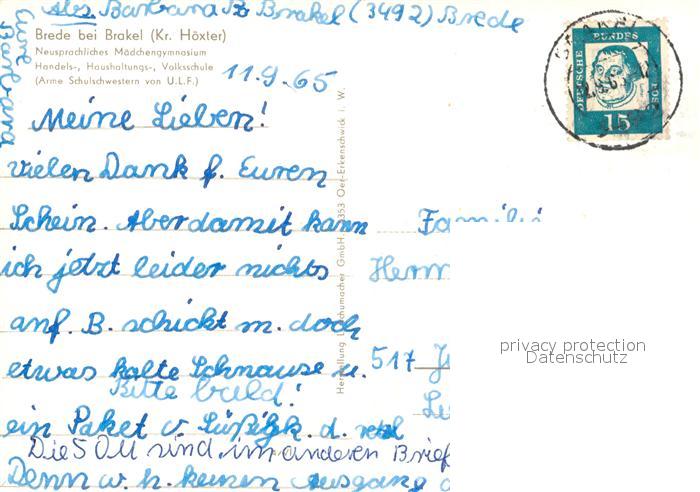 Abs. Barbara B. Brakel (3492) Brede
Eure Barbara
Brede bei Brakel (Kr. Höxter)
Neusprachliches Mädchengymnasium
Handels-, Haushaltungs-, Volksschule
(Arme Schulschwestern von U.L.F.)
11.9.65
Meine Lieben!
vielen Dank f. Euren
Schein. Aber damit kann
ich jetzt leider nichts
anf. B. schickt m. doch
etwas kalte Schnauze u.
Bitte bald!
ein Paket v. d.
Die 5 DM sind im anderen Brief
Denn w. h. keinen Ausgang
Herrn
517
Schumacher GmbH. 353 Oer-Erkenschwick i. W.
DEUTSCHE BUNDESPOST
15
privacy protection
Datenschutz